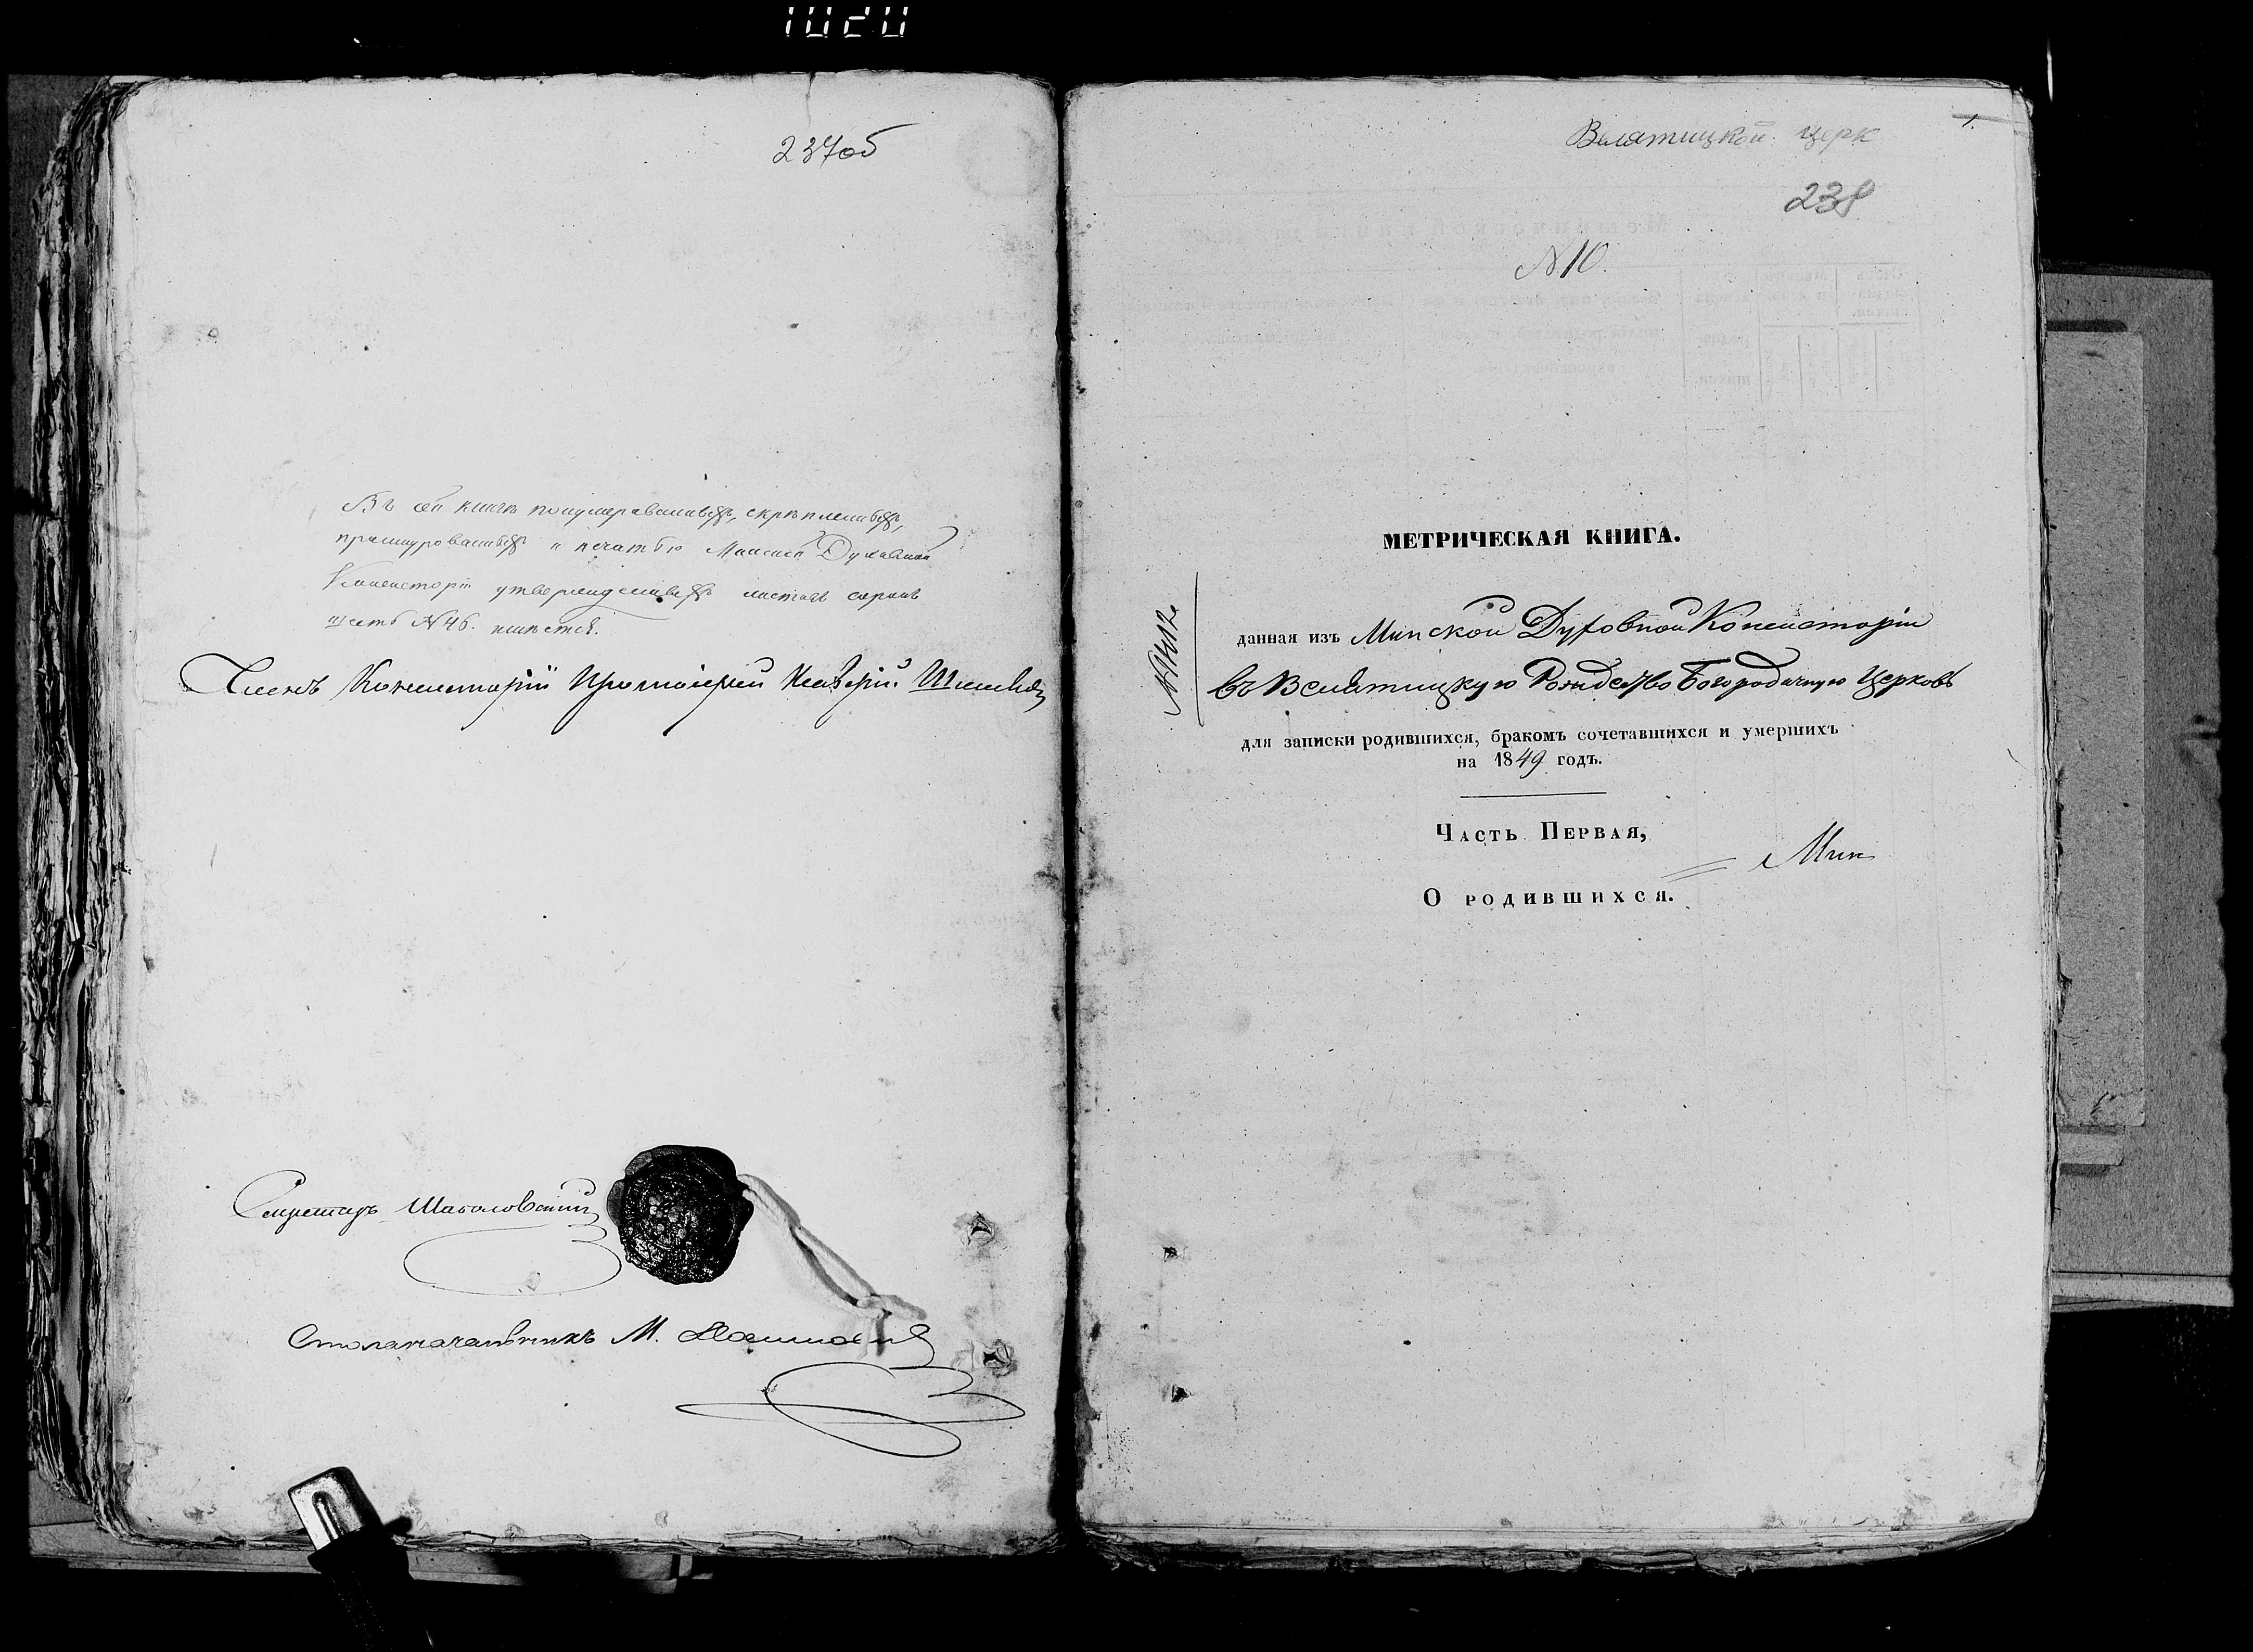 1020
237об
Въ сей книгѣ понумерованныхъ, скрѣпленныхъ,
прошнурованныхъ и печатью Минской Духовной
Консисторіи утвержденныхъ листовъ сорокъ
шесть №46. имѣется.
Членъ Консисторіи Протоіерей
Секретарь
Столоначальникъ М.
1.
Велятицкой церк
238
№10.
МЕТРИЧЕСКАЯ КНИГА.
данная изъ Минской Духовной Консисторіи
въ Велятицкую Рождество Богородичную Церковь
для записки родившихся, бракомъ сочетавшихся и умершихъ
на 1849 годъ.
Часть Первая,
Мин
О родившихся.